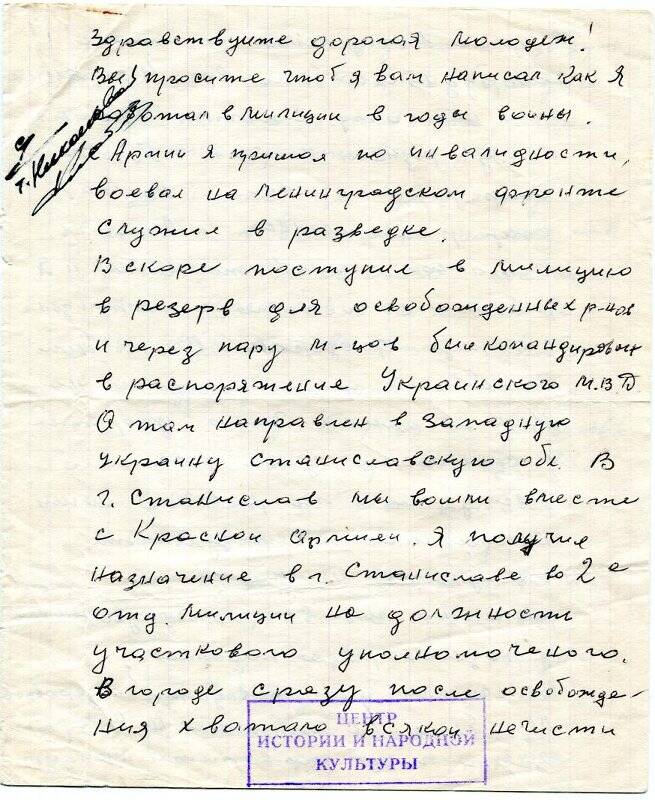 Здравствуите дорогая молодеж!
Вы просите чтоб я вам написал как я
работал в милиции в годы воины.
с Армии я пришол по инвалидности,
воевал на Ленинградском фронте
служил в разведке.
В скоре поступил в милицию
в резерв для освобожденных р-нов
и через пару м-цов был командирован
в распоряжение Украинского М.В.Д
О там направлен в Западную
Украину Станиславскую обл. В
г. Станислав мы вошли вместе
с Краснои армиеи. Я получил
назначение в г. Станиславе во 2е
отд. милиции на должности
участкового уполномоченого.
В городе сразу после освобожде-
ния хватало всякои нечисти
ЦЕНТР
ИСТОРИИ И НАРОДНОЙ
КУЛЬТУРЫ